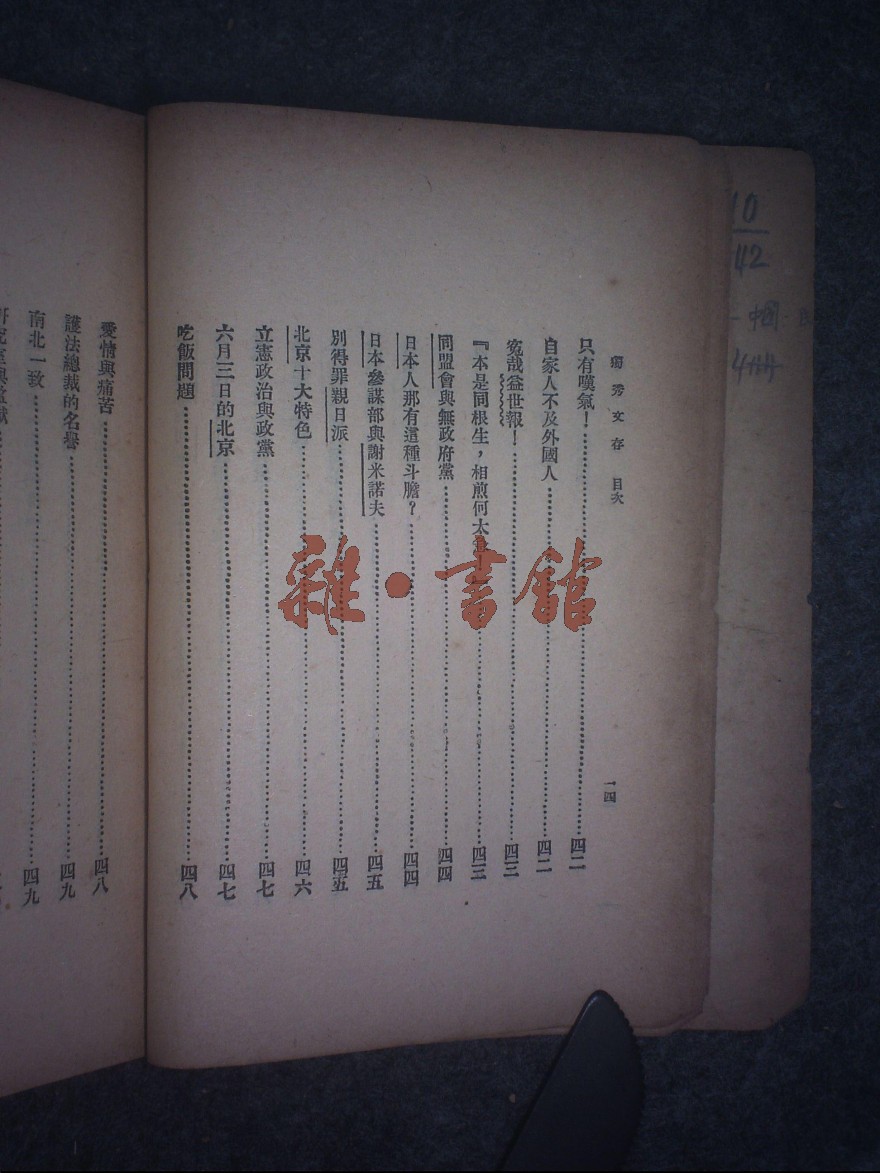 獨秀文存 目次 一四
只有嘆氣！……四二
自家人不及外國人……四二
冤哉益世報！……四三
『本是同根生，相煎何太……四三
同盟會與無政府黨……四四
日本人那有這種斗膽？……四四
日本參謀部與謝米諾夫……四五
別得罪親日派……四五
北京十大特色……四六
立憲政治與政黨……四七
六月三日的北京……四七
吃飯問題……四八
愛情與痛苦……四八
護法總裁的名譽……四九
南北一致……四九
雜·書館
10
42
中國
4冊